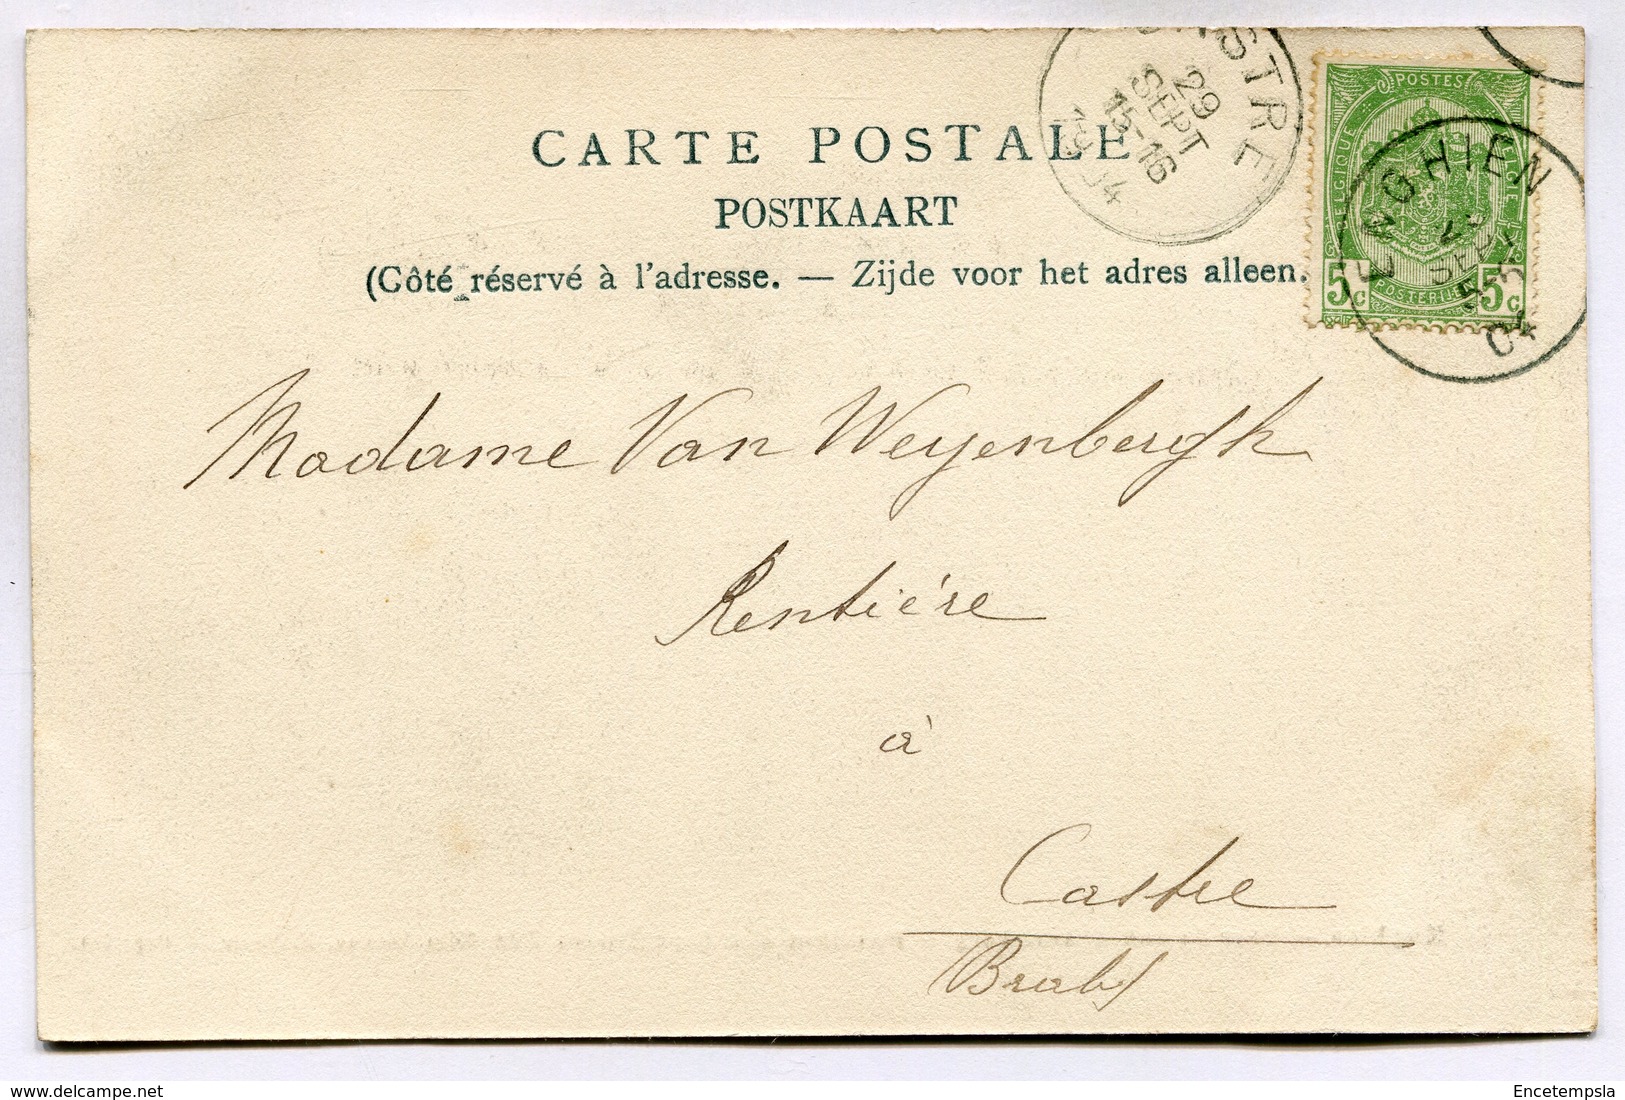 CARTE POSTALE
POSTKAART
(Côté réservé à l'adresse. — Zijde voor het adres alleen.
29
SEPT
15-16
POSTES
BELGIQUE
POSTERIJEN
5c 5c
ENGHIEN
SEPT
04
Madame Van Weyenbergh
Rentière
à
Castre
(Brabt)
delcampe.net
Encetempsla